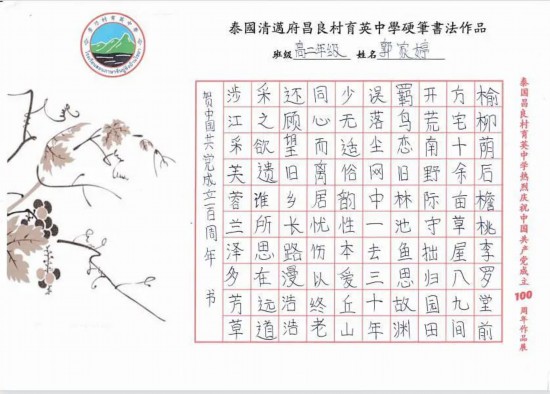 泰國清邁府昌良村育英中學硬筆書法作品
班級 高二年级 姓名 郭家婷
贺中国共党成立一百周年 书
涉江采芙蓉兰泽多芳草
采之欲遗谁所思在远道
还顾望旧乡长路漫浩浩
同心而离居忧伤以终老
少无适俗韵性本爱丘山
误落尘网中一去三十年
羁鸟恋旧林池鱼思故渊
开荒南野际守拙归园田
方宅十余亩草屋八九间
榆柳荫后檐桃李罗堂前
泰国昌良村育英中学热烈庆祝中国共产党成立100周年作品展